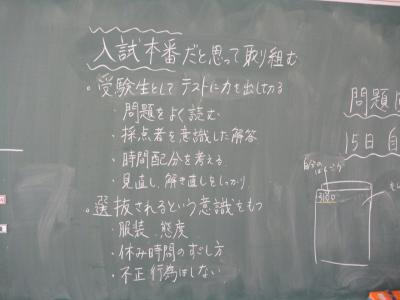 入試本番だと思って取り組む
・受験生としてテストに力を出し切る
・問題をよく読む
・採点者を意識した解答
・時間配分を考える
・見直し、解き直しをしっかり
・選抜されるという意識をもつ
・服装 態度
・休み時間のすごし方
・不正行為はしない
問題
15日 自
自分の